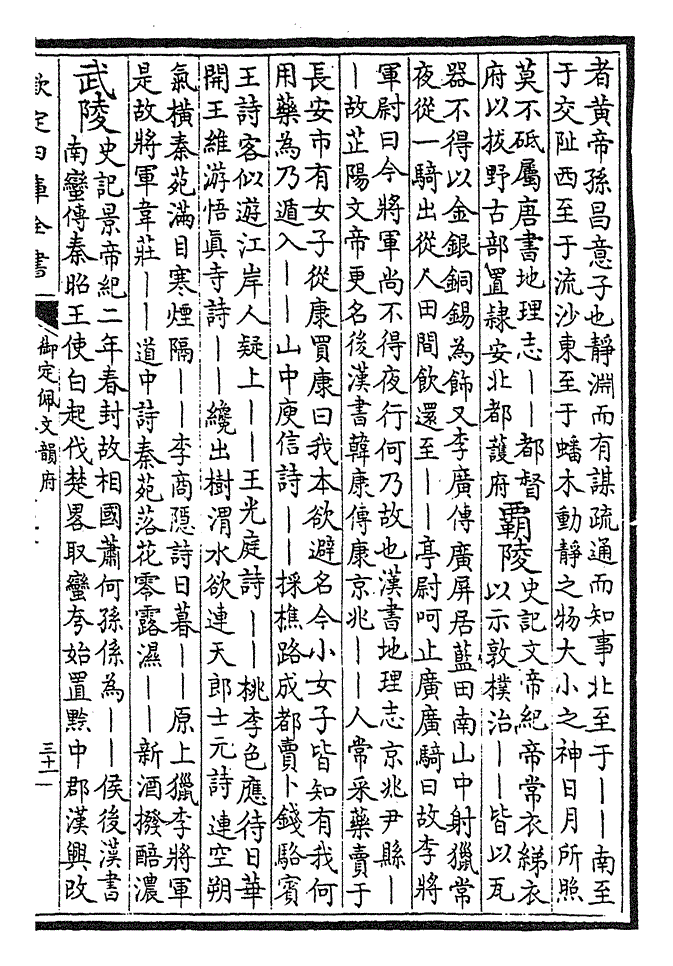 者黄帝孫昌意子也靜淵而有謀疏通而知事北至于——南至
于交阯西至于流沙東至于蟠木動靜之物大小之神日月所照
莫不砥屬唐書地理志——都督
府以拔野古部置隸安北都護府
覇陵
史記文帝紀帝常衣綈衣
以示敦樸治——皆以瓦
器不得以金銀銅錫為飾又李廣傳廣屏居藍田南山中射獵常
夜從一騎出從人田間飲還至——亭尉呵止廣廣騎曰故李將
軍尉曰今將軍尚不得夜行何乃故也漢書地理志京兆尹縣—
—故芷陽文帝更名後漢書韓康傳康京兆——人常采藥賣于
長安市有女子從康買康曰我本欲避名今小女子皆知有我何
用藥為乃遁入——山中庾信詩——採樵路成都賣卜錢駱賓
王詩客似遊江岸人疑上——王光庭詩——桃李色應待日華
開王維游悟眞寺詩——纔出樹渭水欲連天郎士元詩連空朔
氣橫秦苑滿目寒煙隔——李商隱詩日暮——原上獵李將軍
是故將軍韋莊——道中詩秦苑落花零露濕——新酒撥醅濃
武陵
史記景帝紀二年春封故相國蕭何孫係為——侯後漢書
南蠻傳秦昭王使白起伐楚畧取蠻夷始置黔中郡漢興改
欽定四庫全書
御定佩文韻府
三十一